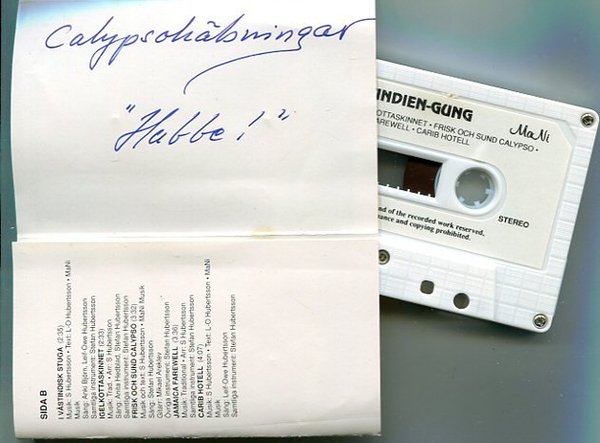 Calypsohälsningar
"Hubbe!"
INDIEN-GUNG
MaNi
KOTTASKINNET • FRISK OCH SUND CALYPSO •
FAREWELL • CARIB HOTELL
STEREO
of the recorded work reserved.
and copying prohibited.
SIDA B
I VÄSTINDISK STUGA (2:35)
Musik: S Hubertsson • Text: L-O Hubertsson • MaNi
Musik
Sång: Anki Björn, Leif-Owe Hubertsson
Samtliga instrument: Stefan Hubertsson
IGELKOTTASKINNET (2:33)
Musik: Trad. • Arr: S Hubertsson
Sång: Anita Hedblad, Stefan Hubertsson
Samtliga instrument: Stefan Hubertsson
FRISK OCH SUND CALYPSO (3:32)
Musik och text: S Hubertsson • MaNi Musik
Sång: Stefan Hubertsson
Gitarr: Mikael Areklev
Övriga instrument: Stefan Hubertsson
JAMAICA FAREWELL (3:36)
Musik: Traditional • Arr: S Hubertsson
Samtliga instrument: Stefan Hubertsson
CARIB HOTELL (4:07)
Musik: S Hubertsson • Text: L-O Hubertsson • MaNi
Musik
Sång: Leif-Owe Hubertsson
Samtliga instrument: Stefan Hubertsson